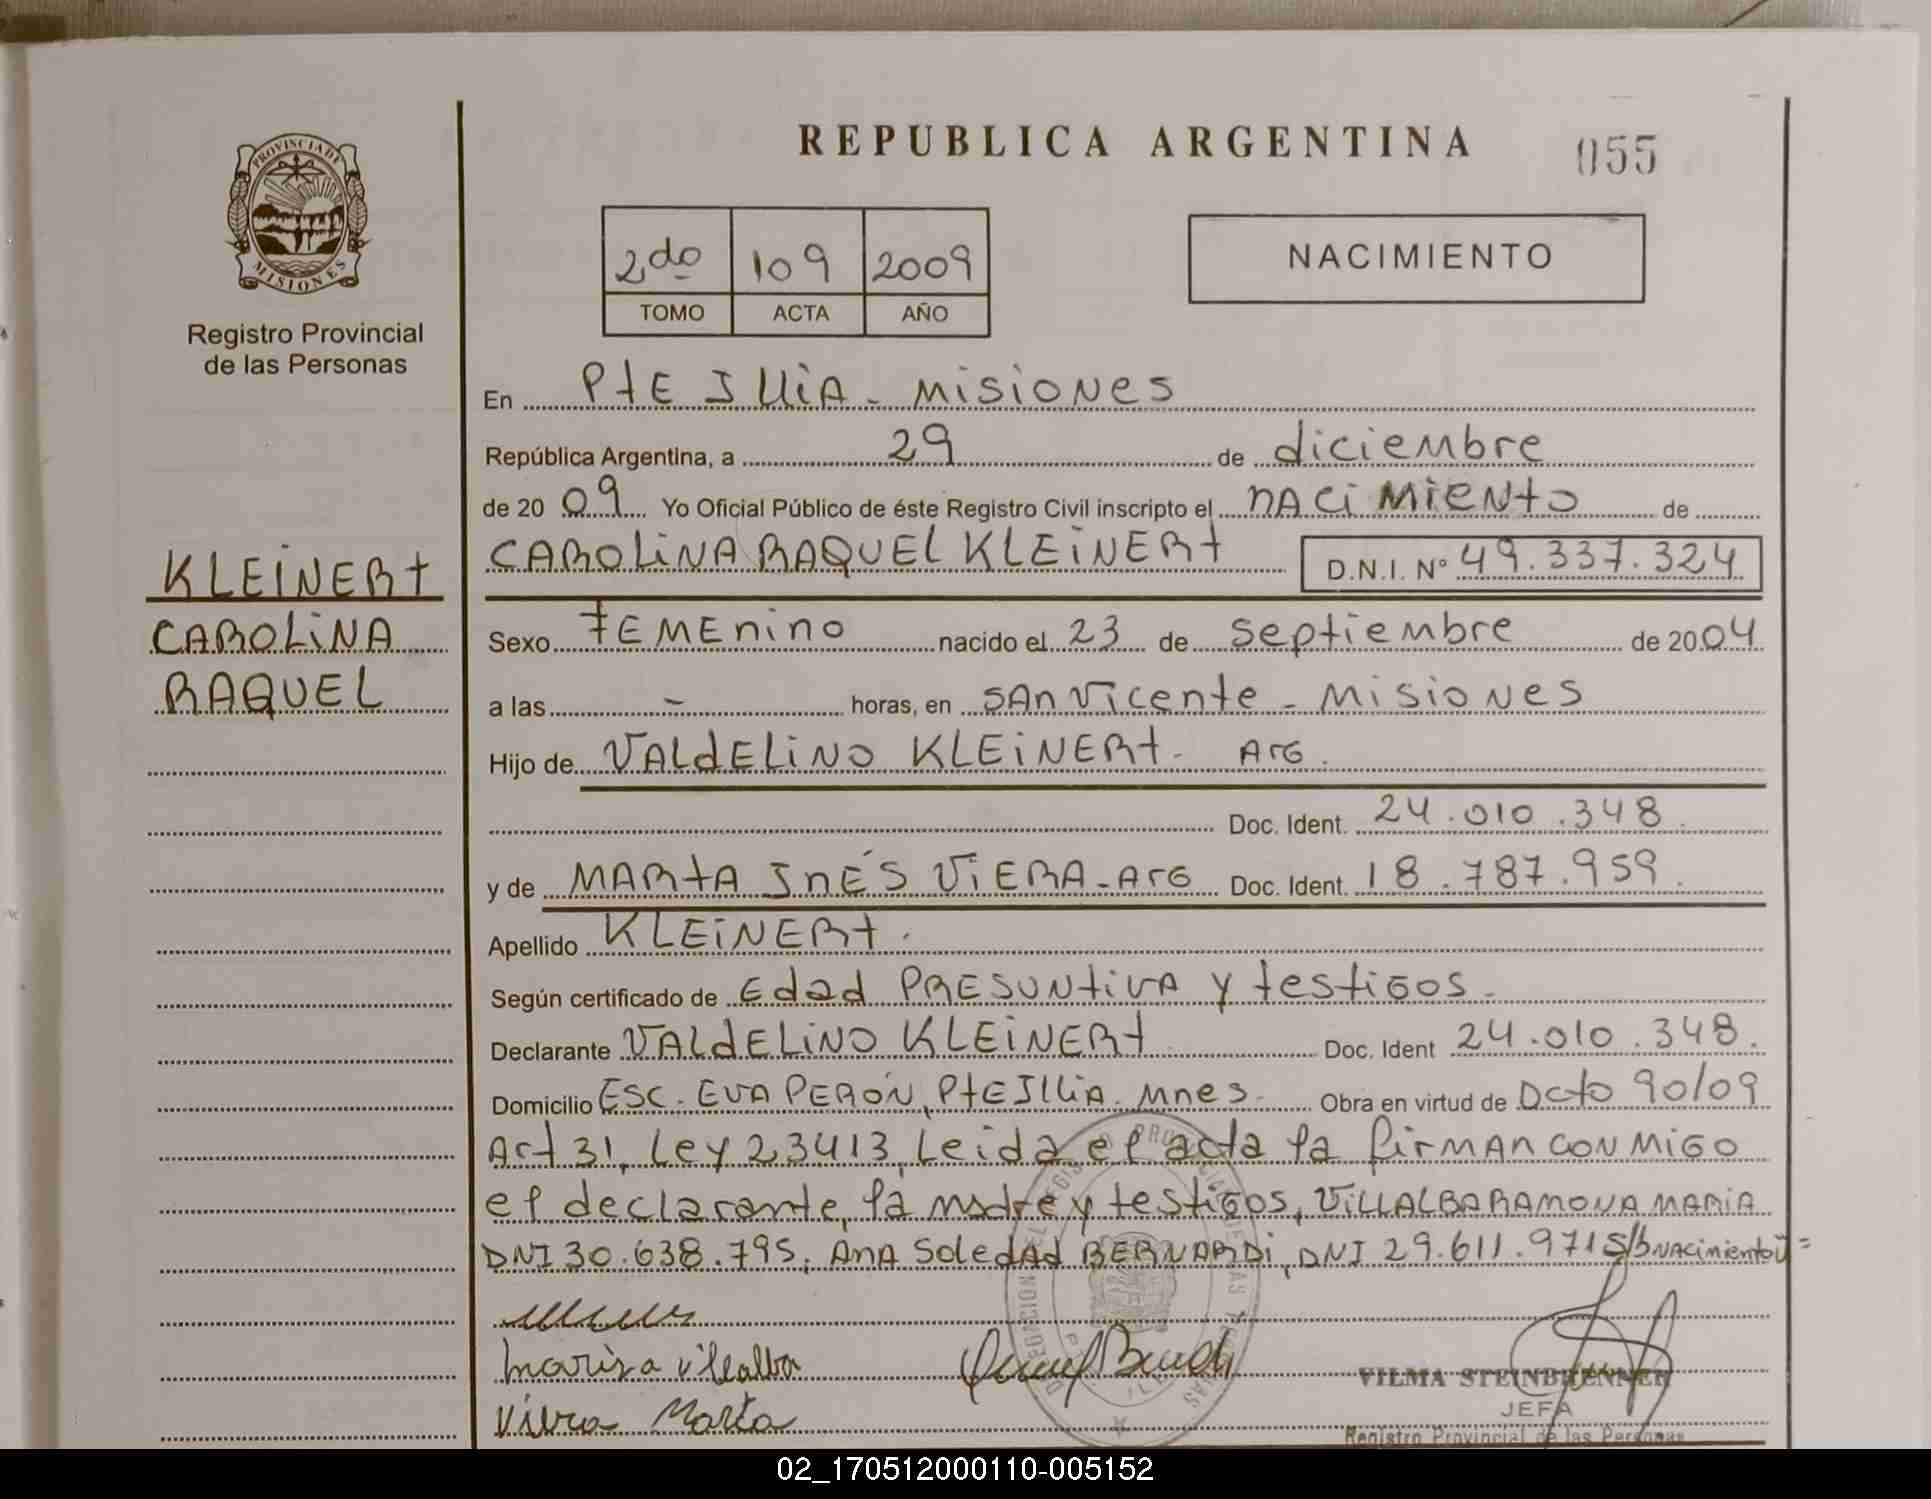 REPUBLICA ARGENTINA
055
PROVINCIA DE
MISIONES
Registro Provincial
de las Personas
2do 109 2009
TOMO ACTA AÑO
NACIMIENTO
En PtE Illia - Misiones
República Argentina, a 29 de diciembre
de 20 09 Yo Oficial Público de éste Registro Civil inscripto el nacimiento de
CAROLINA RAQUEL KLEINERt D.N.I. Nº 49.337.324
KLEINERt
CAROLINA
RAQUEL
Sexo Femenino nacido el 23 de septiembre de 2004
a las - horas, en San Vicente - Misiones
Hijo de VALdELINO KLEINERt - Arg.
Doc. Ident. 24.010.348
y de MARtA Inés VIERA - Arg Doc. Ident. 18.787.959.
Apellido KLEINERt.
Según certificado de Edad PRESUNtiva y testigos -
Declarante VALdELINO KLEINERt Doc. Ident 24.010.348.
Domicilio Esc. EVA PERÓN, PtE Illia. Mnes. Obra en virtud de Dcto 90/09
Art 31, Ley 23413, Leida el acta la firman conmigo
el declarante, la madre y testigos, VILLALBA RAMONA MARIA
DNI 30.638.795, Ana Soledad BERNARDi, DNI 29.611.971 s/b nacimiento
Mariza Villalba
Viera Marta
VILMA STEINBRENNER
JEFA
Registro Provincial de las Personas
02_170512000110-005152